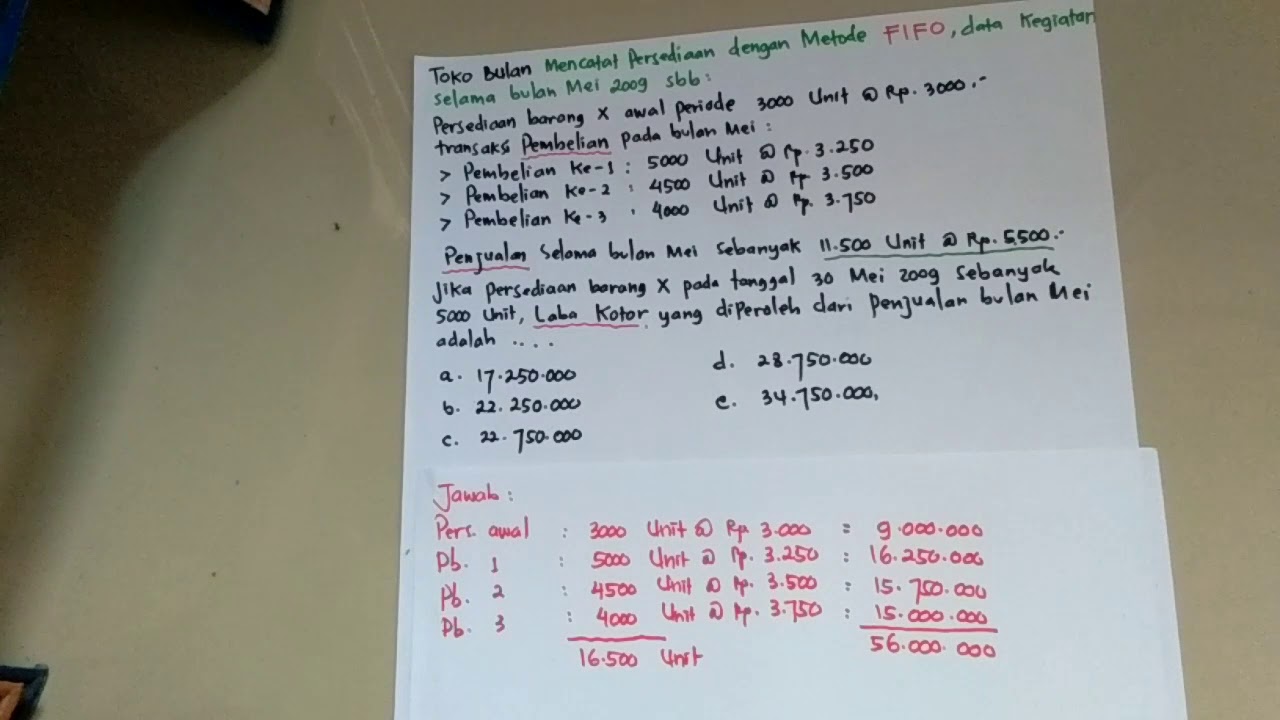 Toko Bulan Mencatat Persediaan dengan Metode FIFO, data Kegiatan
selama bulan Mei 2009 sbb:
Persediaan barang X awal periode 3000 Unit @ Rp. 3000.-
transaksi Pembelian pada bulan Mei :
> Pembelian Ke-1 : 5000 Unit @ Rp. 3.250
> Pembelian Ke-2 : 4500 Unit @ Rp 3.500
> Pembelian Ke-3 : 4000 Unit @ Rp. 3.750
Penjualan Selama bulan Mei Sebanyak 11.500 Unit @ Rp. 5.500.-
Jika persediaan barang X pada tanggal 30 Mei 2009 Sebanyak
5000 Unit, Laba Kotor yang diperoleh dari penjualan bulan Mei
adalah ....
a. 17.250.000
b. 22.250.000
c. 22.750.000
d. 28.750.000
e. 34.750.000,
Jawab :
Pers. awal : 3000 Unit @ Rp 3.000 = 9.000.000
Pb. 1 : 5000 Unit @ Rp. 3.250 : 16.250.000
Pb. 2 : 4500 Unit @ Rp. 3.500 : 15.750.000
Pb. 3 : 4000 Unit @ Rp. 3.750 : 15.000.000
16.500 Unit 56.000.000